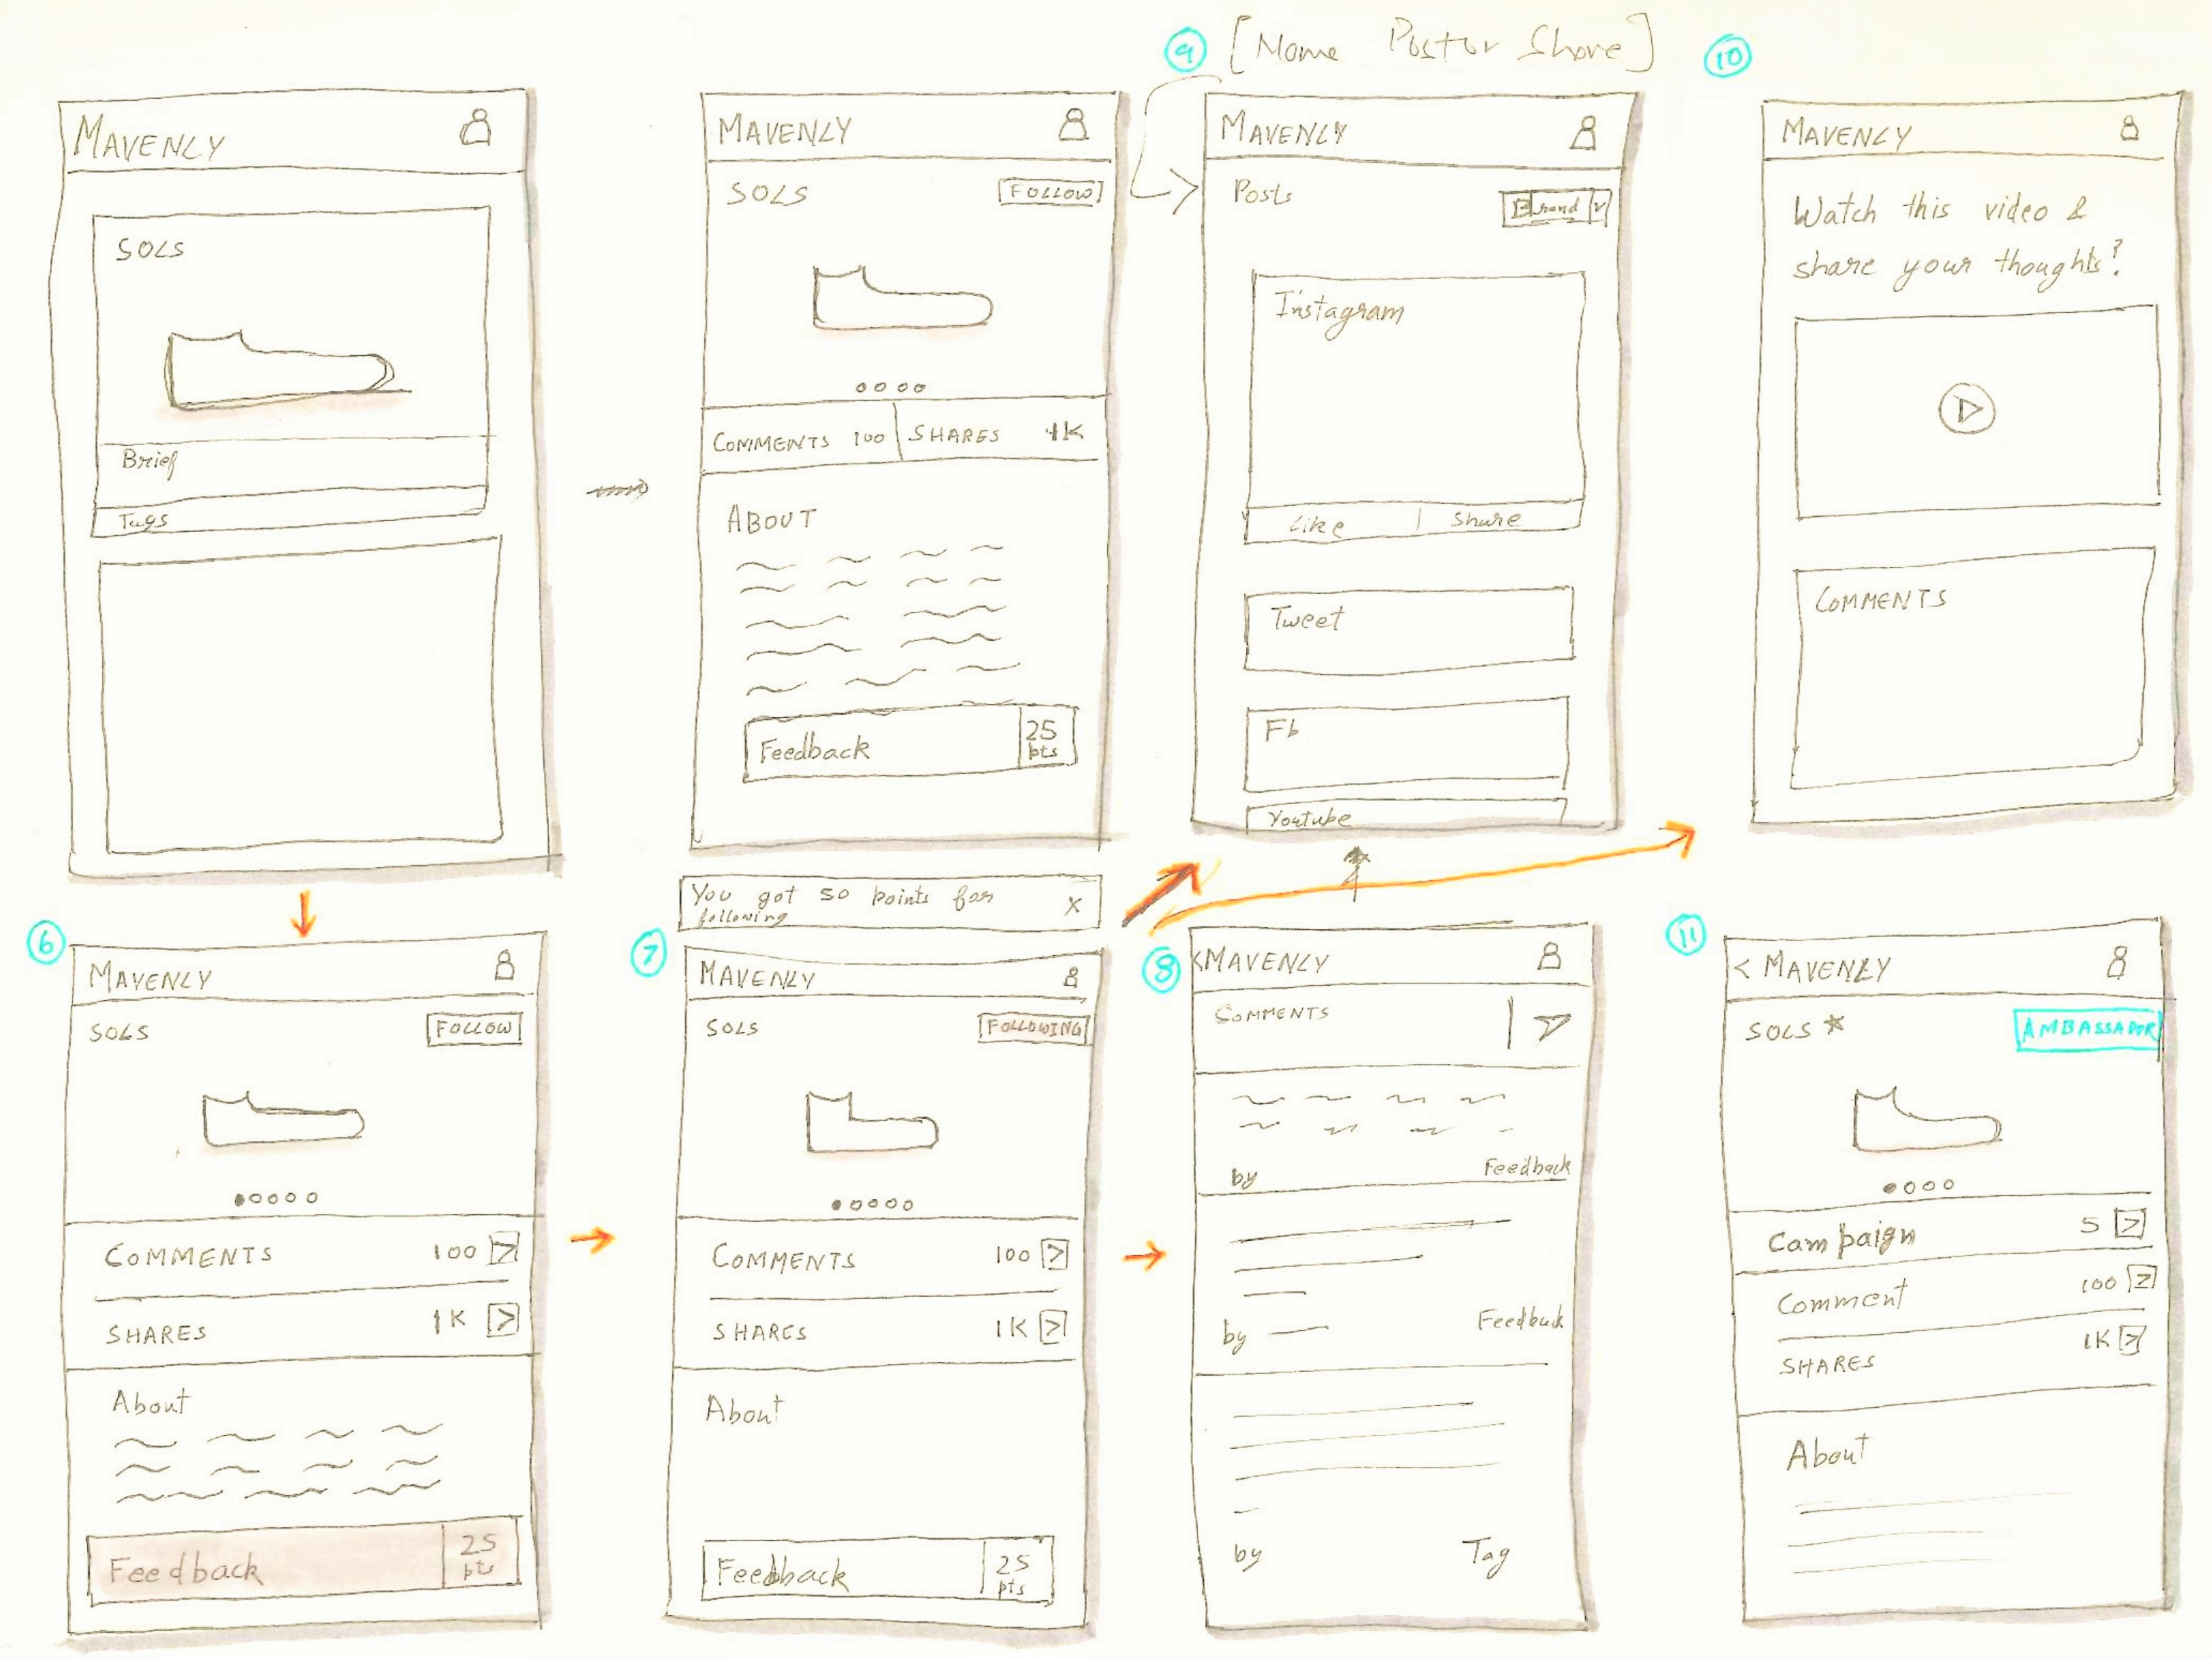 MAVENLY
SOLS
Brief
Tags
MAVENLY
SOLS
FOLLOW
COMMENTS 100
SHARES 1K
ABOUT
Feedback
25
pts
9
MAVENLY
Posts
Brand
Instagram
Like
Share
Tweet
Fb
Youtube
10
MAVENLY
Watch this video &
share your thoughts!
COMMENTS
6
MAVENLY
SOLS
FOLLOW
COMMENTS 100 >
SHARES 1K >
About
Feedback
25
pts
You got 50 points for
following
X
7
MAVENLY
SOLS
FOLLOWING
COMMENTS 100 >
SHARES 1K >
About
Feedback
25
pts
8
<MAVENLY
COMMENTS
by
Feedback
by
Feedback
by
Tag
11
< MAVENLY
SOLS *
AMBASSADOR
Campaign 5 >
Comment 100 >
SHARES 1K >
About